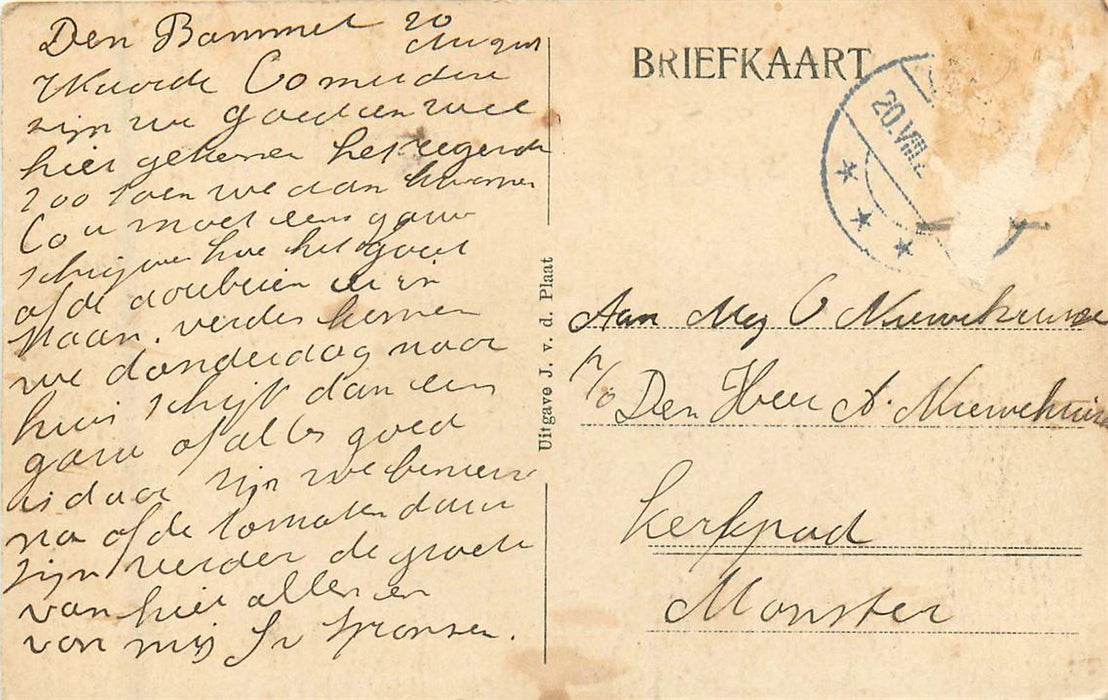 Den Bommel 20
August
Waarde Co meiden
zijn we goed en wel
hier gekomen het regende
zoo toen we aan kwamen
Co u moet eens gauw
schrijven hoe het gaat
of de doubein er in
staan. verder komen
we donderdag naar
huis schijt dan een
gauw of alles goed
is daar zijn we benieuw
na of de tomaten daar
zijn verder de groete
van hier allen en
van mij J v Spronsen.
BRIEFKAART
20.VIII.
Uitgave J. v. d. Plaat
Aan Mej C Nieuwehuize
p/o Den Heer A. Nieuwehuize
Kerkpad
Monster